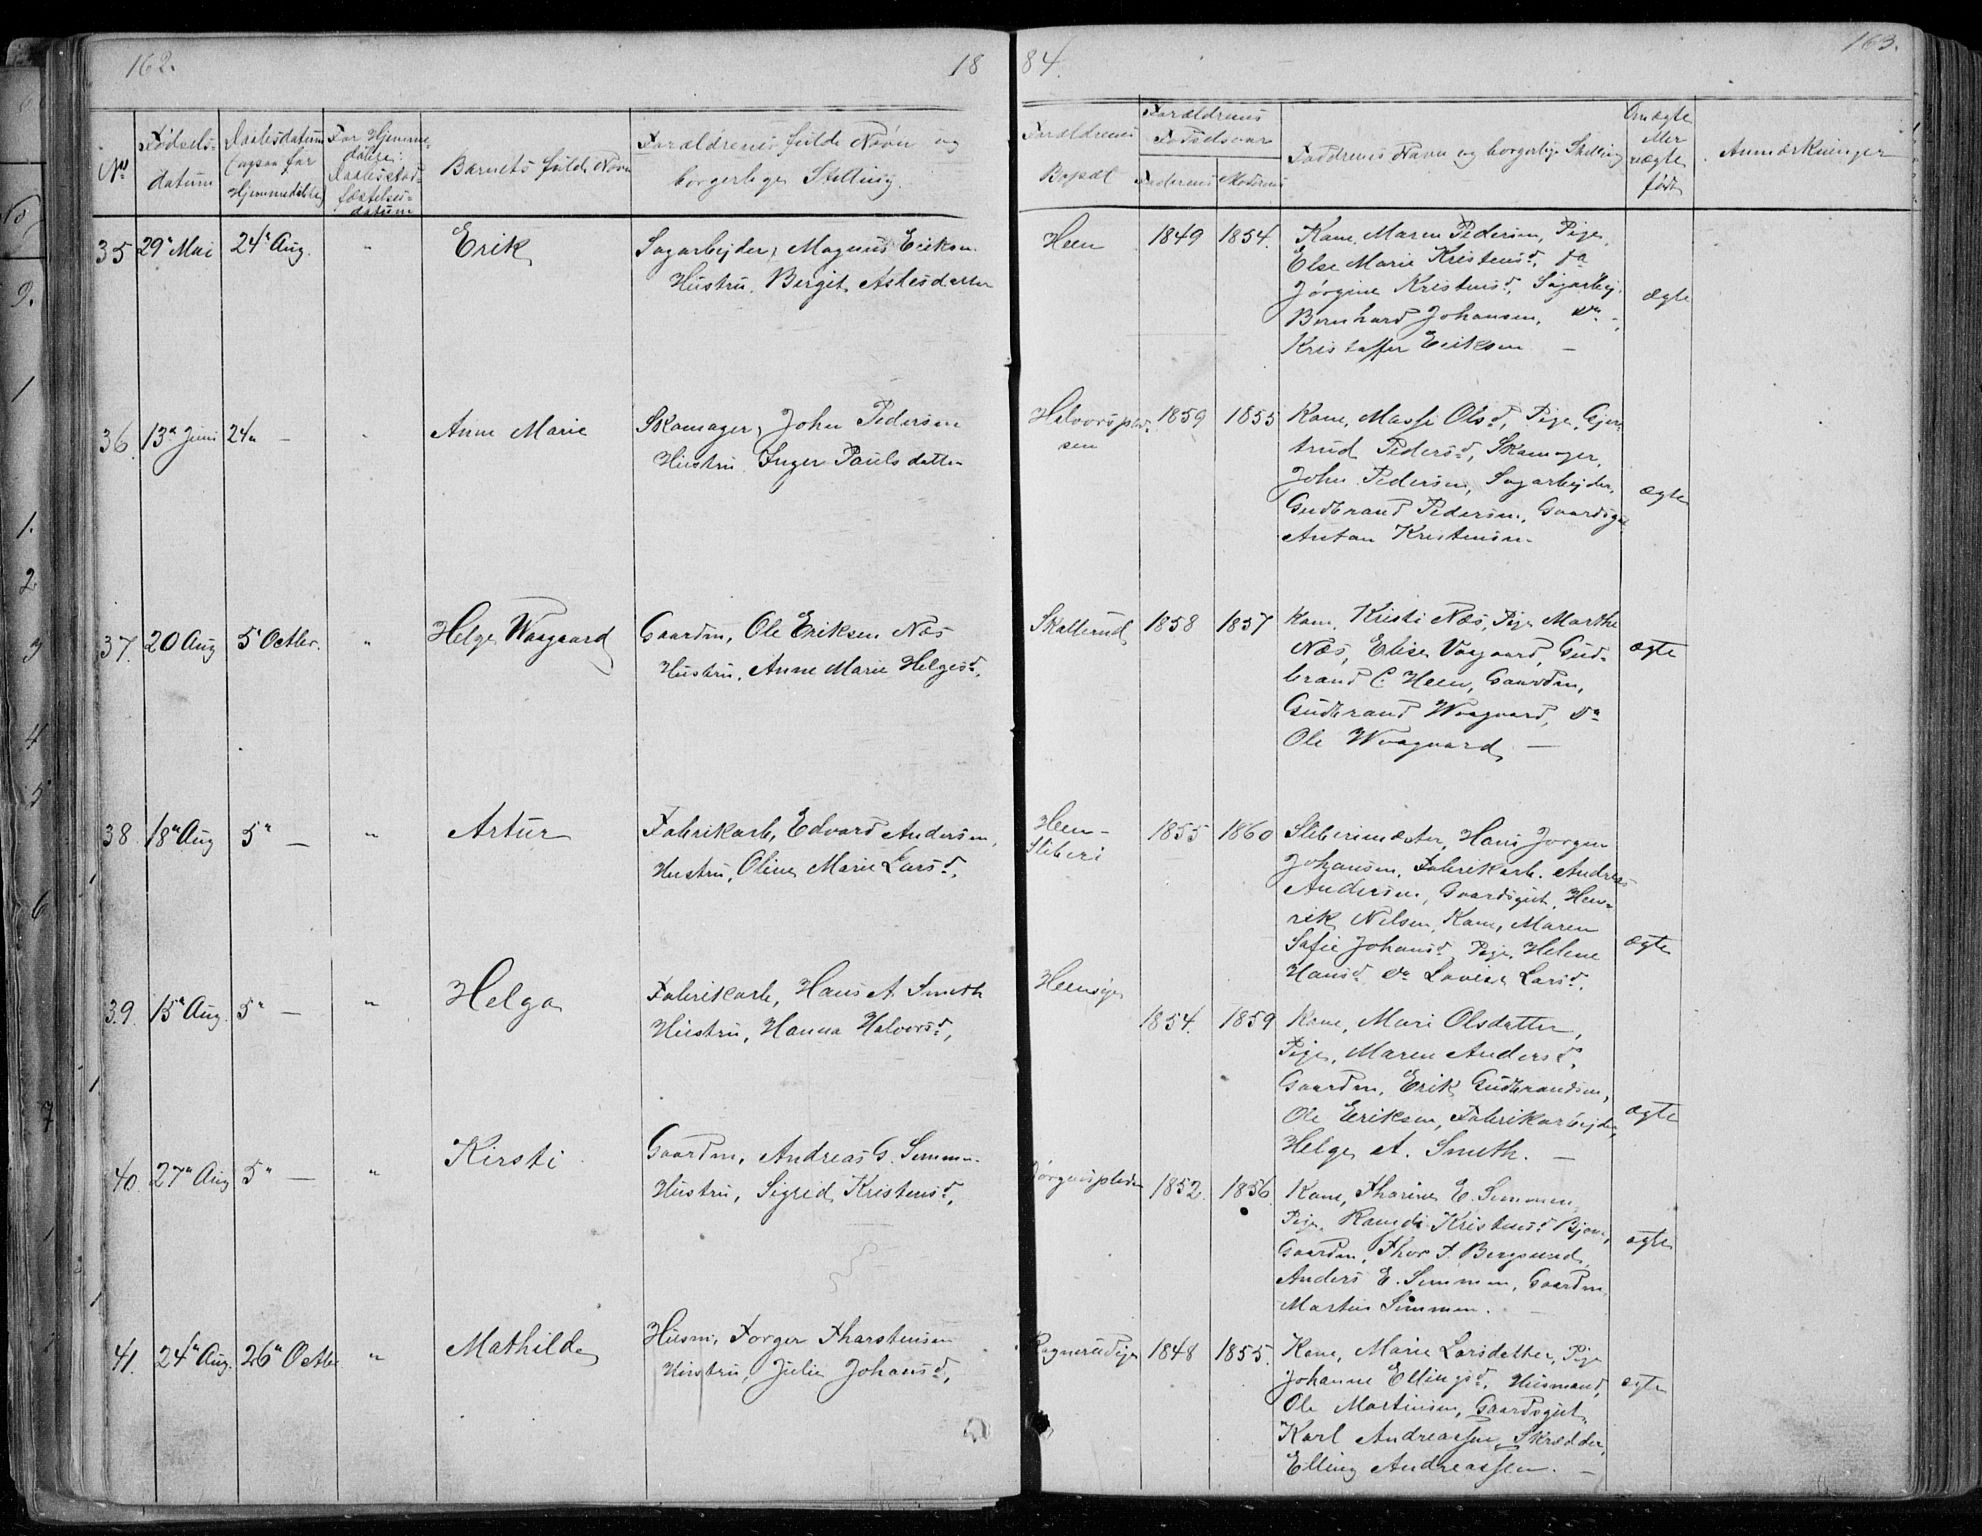 162.
18
84.
163.
No
Fødsels-
datum
Daabsdatum
(ogsaa for
Hjemmedøbte)
For Hjemme-
døbte:
Daabsstad-
fæstelses-
datum
Barnets fulde Navn
Forældrenes fulde Navn og
borgerlige Stilling.
Forældrenes
Bopæl
Forældrenes
Fødselsaar
Faderens Moderens
Faddrenes Navn og borgerlige Stilling
Om ægte
eller
uægte
født
Anmærkninger
35 29n Mai 24n Aug. " Erik
Sagarbejder, Magnus Eriksen
Hustru, Bergit Aslesdatter
Heen 1849 1854.
Kone, Maren Pedersen, Pige,
Else Marie Kristensd, do
Jørgine Kristensd, Sagarbej.
Bernhard Johansen, do -,
Kristoffer Eriksen —
ægte
36. 13n Juni 24n — " Anne Marie
Skomager, John Pedersen
Hustru, Inger Paulsdatter
Halvorspled-
sen
1859 1855
Kone, Masse Olsd, Pige, Gjer-
trud Pedersd, Skomager,
John Pedersen, Sagarbejder,
Gudbrand Pedersen, Gaardsgut
Anton Kristensen.
ægte
37. 20 Aug 5 Octbr. " Helge Waagaard
Gaardm, Ole Eriksen Næs
Hustru, Anne Marie Helgesd,
Skollerud 1858 1857
Kone, Kristi Næs, Pige Marthe
Næs, Elise Vaagaard, Gud-
brand C. Heen, Gaardm,
Gudbrand Waagaard, do
Ole Waagaard, —
ægte
38. 18n Aug 5n — " Artur
Fabrikarb, Edvard Andersen,
Hustru, Oline Marie Larsd,
Heen-
Sliberi
1855 1860
Slibermester, Hans Jørgen
Johansen, Fabrikarb. Andreas
Andersen, Gaardsgut, Hen-
rik Nilsen, Kone, Maren
Sofie Johansd, Pige, Helene
Hansd, do Lovise Larsd,
ægte
39. 15n Aug. 5n — " Helga
Fabrikarb, Hans A. Smeth
Hustru, Hanna Halvorsd,
Heenseje
1854. 1859
Kone, Mari Olsdatter,
Pige, Maren Andersd,
Gaardm, Erik Gudbrandsen,
Ole Eriksen, Fabrikarbejder,
Helge A. Smeth. —
ægte
40. 27n Aug 5n — " Kirsti
Gaardm, Andreas G. Semmen.
Hustru, Sigrid Kristensd,
Jørgenspladsen 1852. 1856
Kone, Thorine E. Semmen
Pige, Randi Kristensd Bjone,
Gaardm, Thor T. Bergsund,
Anders E. Semmen, Gaardm
Martin Semmen. —
ægte
41. 24n Aug. 26n Octbr " Mathilde
Husm, Torger Tharstensen
Hustru, Julie Johansd,
Ragnerudeje 1848 1855.
Kone, Marie Larsdatter, Pige
Johanne Ellingsd, Husmand,
Ole Martinsen, Gaardsgut,
Karl Andreassen, Skrædder,
Elling Andreassen. —
ægte